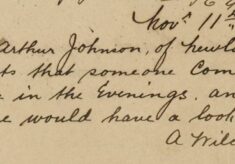 Novr 11th
Arthur Johnson, of
ts that someone Com
e in the Evenings. an
e would have a look
A Wil